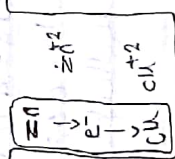 Zn
↓
e-
↓
Cu
Zn+2
Cu+2